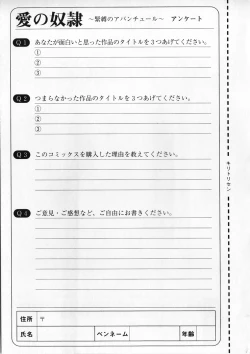 愛の奴隷 ～緊縛のアバンチュール～ アンケート
Q1 あなたが面白いと思った作品のタイトルを3つあげてください。
①
②
③
Q2 つまらなかった作品のタイトルを3つあげてください。
①
②
③
Q3 このコミックスを購入した理由を教えてください。
Q4 ご意見・ご感想など、ご自由にお書きください。
住所 〒
氏名 ペンネーム 年齢
キリトリセン